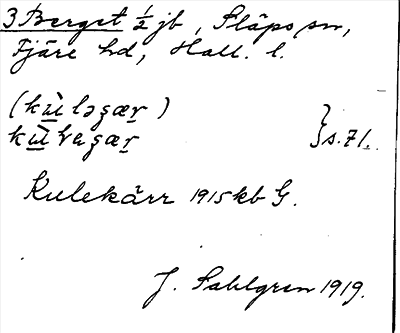 3 Berget ½ jb, Släps sn,
Fjäre hd, Hall. l.
(kùləʂær)
kùlvaʂær } s. 71.
Kulekärr 1915 kb G.
J. Sahlgren 1919.